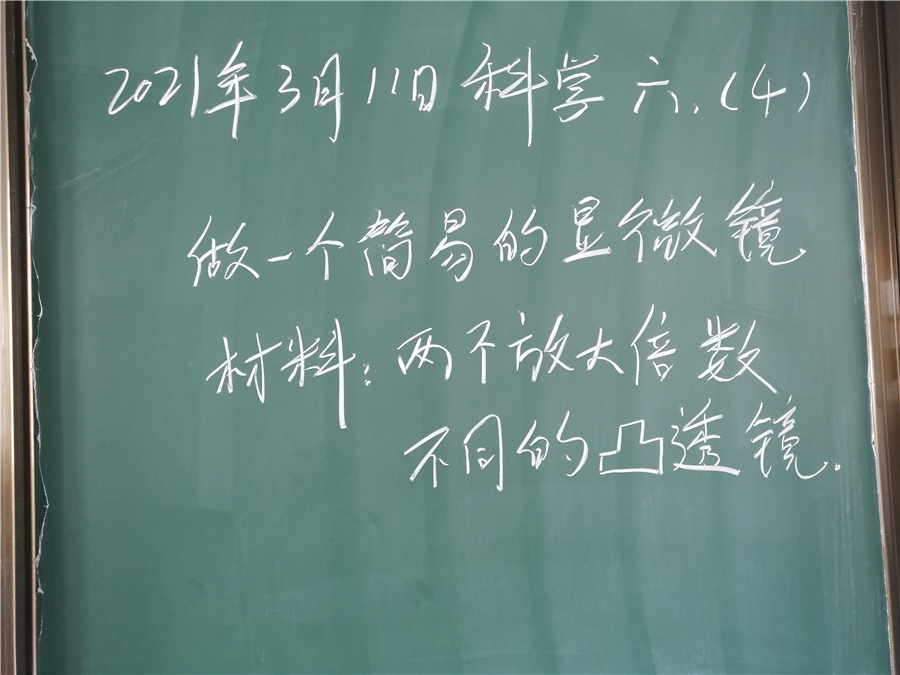 2021年3月11日 科学 六.(4)
做一个简易的显微镜
材料:两个放大倍数
不同的凸透镜.